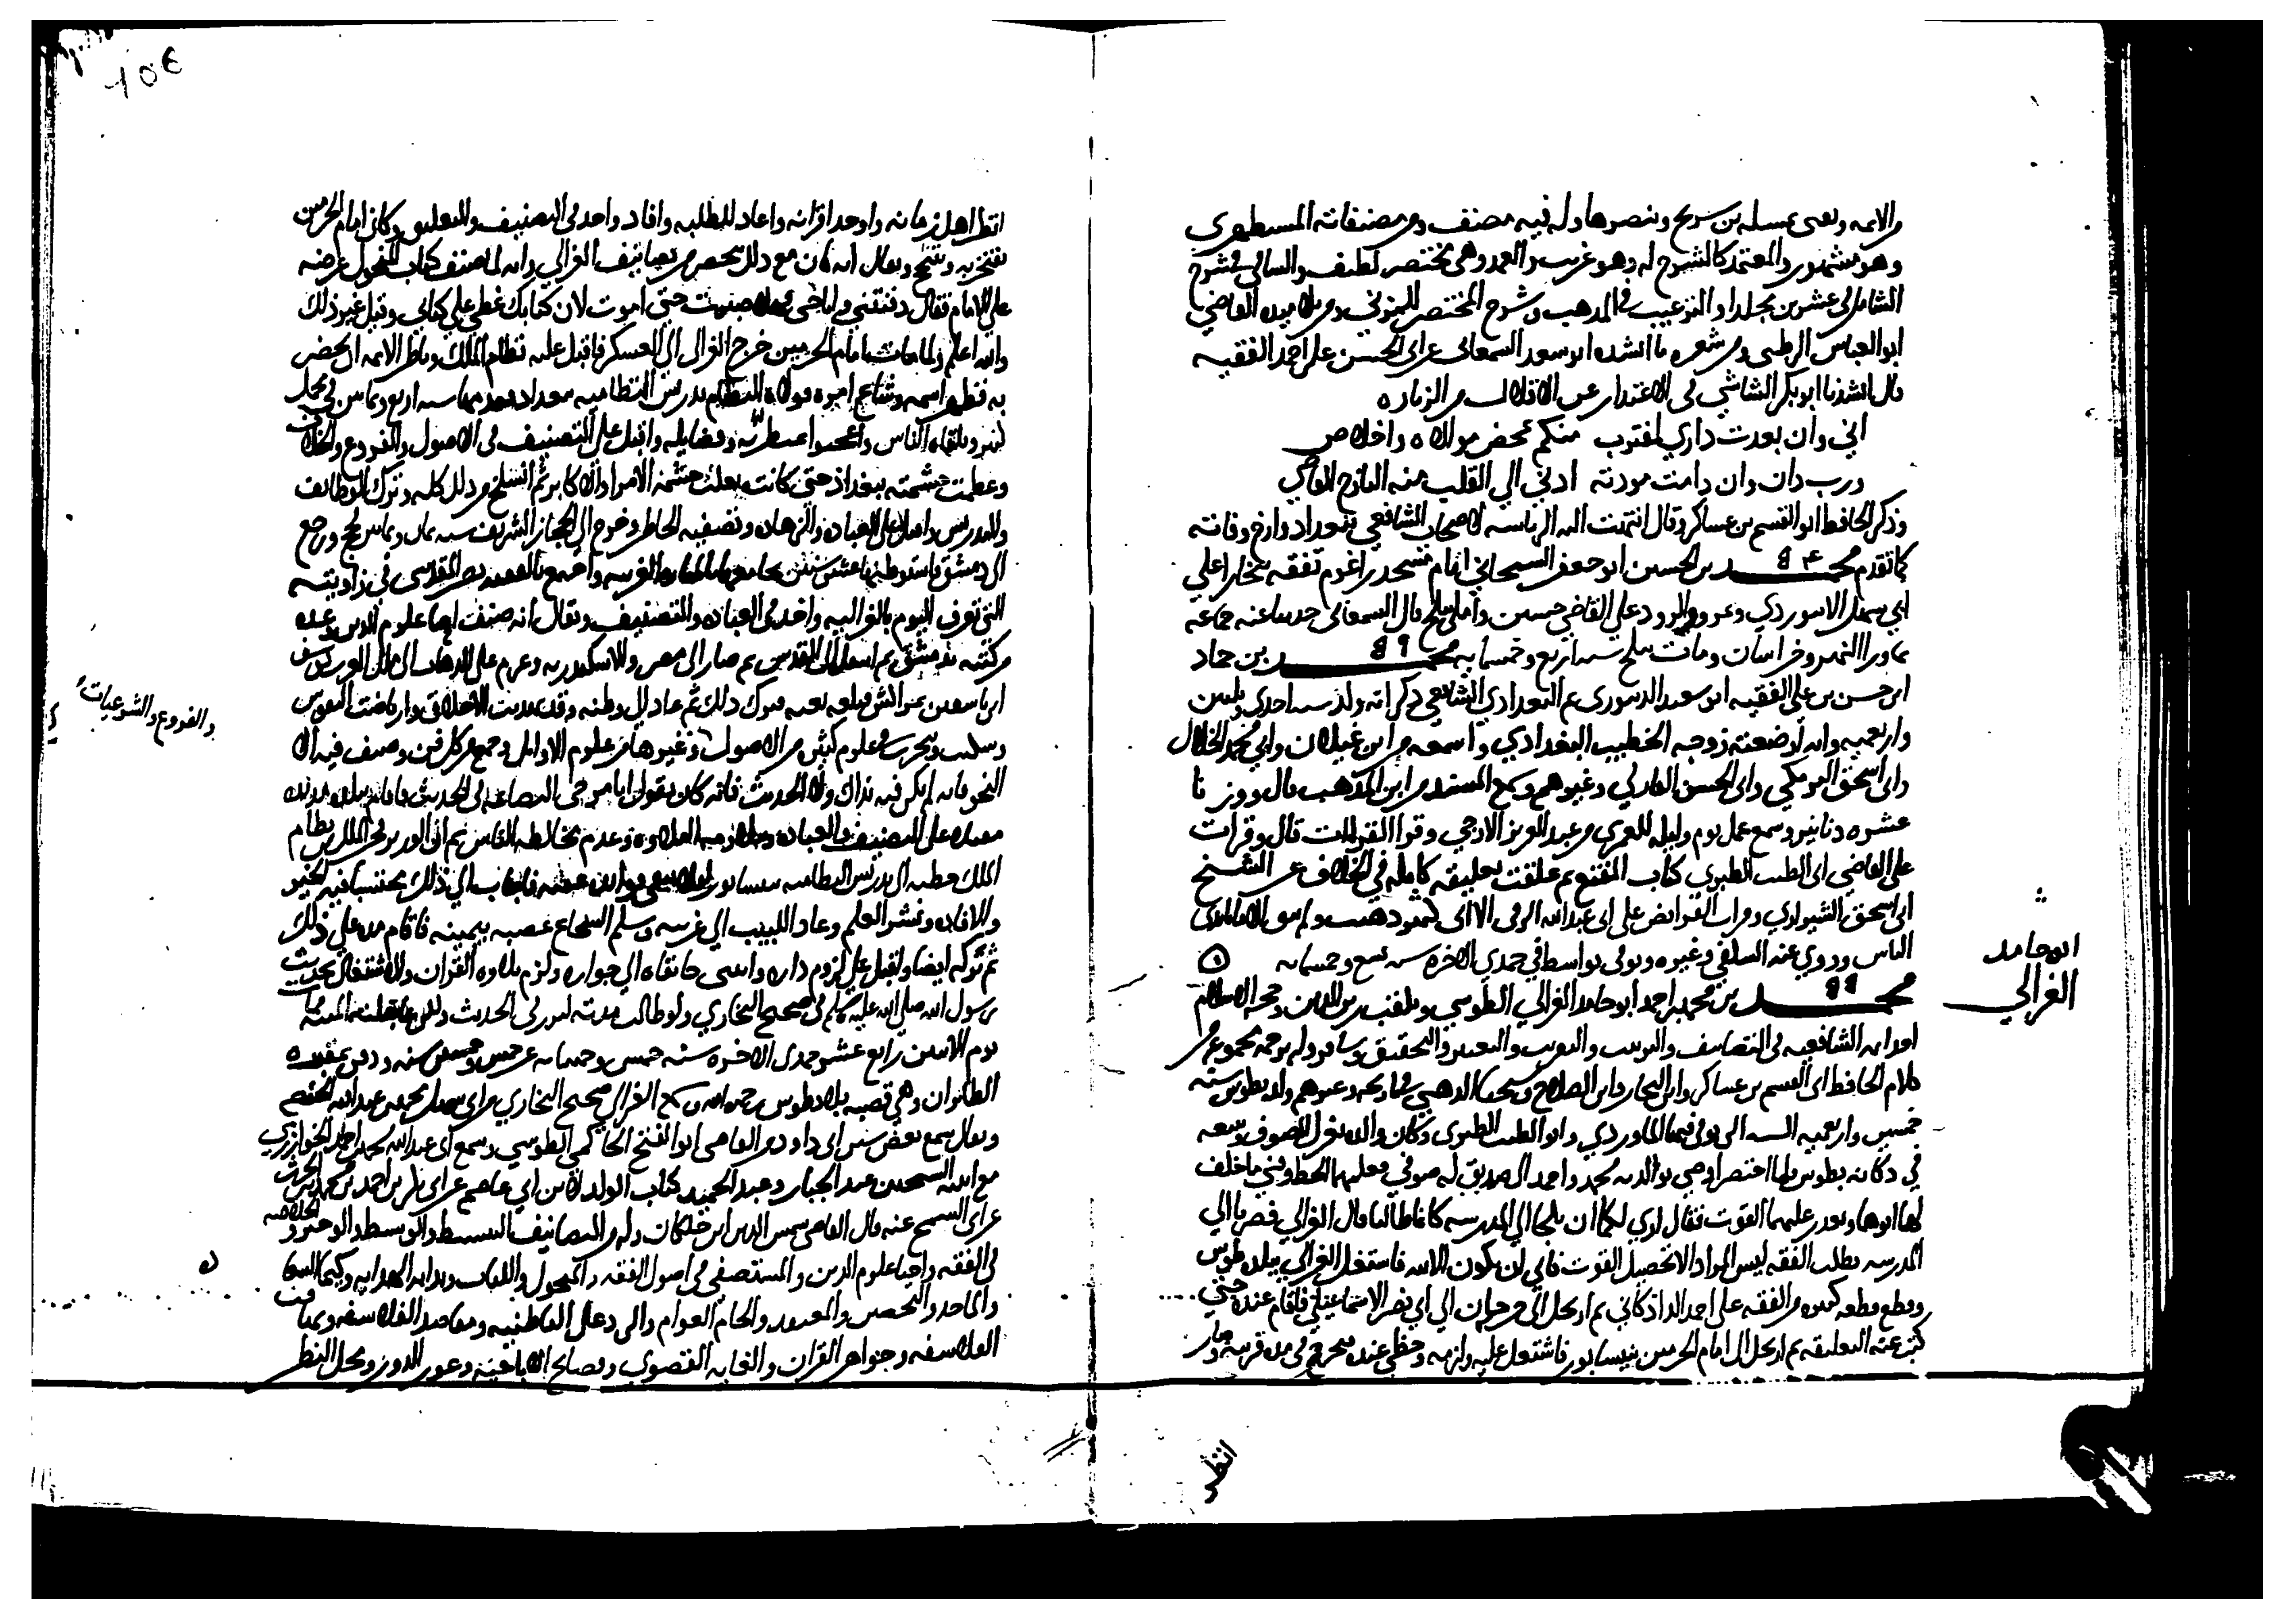 والائمه ويفتى بمسله بن سريج وينصرها وله فيه مصنف ومن مصنفاته المستظهري
وهو مشهور والمعتمد كالشرح له وهو غريب والعمد وهي مختصر لطيف والشافي في شرح
الشامل في عشرين مجلدا والترغيب في المذهب وشرح المختصر للمزني ومن تلاميده القاضي
ابو العباس الرطبي ومن شعره ما انشده ابو سعد السمعاني عن ابي الحسن علي احمد الفقيه
قال انشدنا ابو بكر الشاشي في الاعتذار عن الاقلال من الزياره
اني وان بعدت داري لمقترب منكم بمحض موالاه واخلاص
ورب دان وان دامت مودته ادنى الي القلب منه النازح القاصي
وذكر الحافظ ابو القسم بن عساكر وقال انتهت اليه الرياسه لاصحاب الشافعي ببغداد وارخ وفاته
كما تقدم محمد بن الحسين ابو جعفر السمحاني امام مسجد راغوم تفقه ببخارا علي
ابي سهل الابيوردي وبمرو الرود علي القاضي حسين واملى ببلخ قال السمعاني حدثنا عنه جماعه
بماورا النهر وخراسان ومات ببلخ سنه اربع وخمسمايه محمد بن حماد
ابن حسن بن علي الفقيه ابو سعيد الدينوري ثم البغدادي الشافعي ذكر انه ولد سنه احدى وثلثين
واربعميه وانه ارضعته زوجه الخطيب البغدادي واسمعه من ابن غيلان وابي محمد الخلال
وابي اسحق البرمكي وابي الحسن القزويني وغيرهم وسمع المسند من ابن المذهب قال ووزنا
عشره دنانير وسمع عمل يوم وليله للمعمري من عبد العزيز الازجي وقرا القرات قال وقرات
علي القاضي ابي الطيب الطبري كتاب المقنع ثم علقت تعليقه كامله في الخلاف عن الشيخ
ابي اسحق الشيرازي وقرات الفرائض على ابي عبد الله
الناس وروي عنه السلفي وغيره وتوفى بواسط في جمدي الاخره سنه تسع وخمسمايه
محمد بن محمد بن احمد ابو حامد الغزالي الطوسي ويلقب بزين الدين وحجه الاسلام
احد ايمه الشافعيه في التصانيف والترتيب والتقريب والتعبير والتحقيق وله ترجمه مجموعه من
كلام الحافظ ابي القسم بن عساكر وابن النجار وابن الصلاح وشيخنا الذهبي في تاريخه وغيرهم ولد بطوس سنه
خمسين واربعميه السنه التي توفى فيها الماوردي وابو الطيب الطبري وكان والده يغزل الصوف ويبيعه
في دكانه بطوس فلما احتضر اوصي بولديه محمد واحمد الى صديق له صوفي فعلمهما الخط وفني ما خلف
لهما ابوهما وتعذر عليهما القوت فقال اري لكما ان تلجا الي المدرسه كانكما طالبا قال الغزالي فصرنا الي
المدرسه نطلب الفقه ليس المراد الا تحصيل القوت فابي ان يكون الا لله فاشتغل الغزالي ببلده طوس
وقطع قطعه كبيره من الفقه على احمد الراذكاني ثم ارتحل الى جرجان الي ابي نصر الاسماعيلي فاقام عنده حتى
كتب عنه التعليقه ثم ارتحل الى امام الحرمين بنيسابور فاشتغل عليه ولزمه وحظى عنده وتخرج في مده قريبه وصار
ابو حامد
الغزالي
انظر
انظر اهل زمانه واوحد اقرانه واعاد للطلبه وافاد واخذ في التصنيف والتعليق وكان امام الحرمين
يفتخر به ويتبجح ويقال انه كان مع ذلك من تصانيف الغزالي وانه لما صنف كتاب المنخول عرضه
علي الامام فقال دفنتني وانا حي فهلا صبرت حتى اموت لان كتابك غطى علي كتابي وقيل غير ذلك
والله اعلم ولما مات امام الحرمين خرج الغزالي الي العسكر فاقبل عليه نظام الملك وناظر الائمه الى بحضر
به فظهر اسمه وشاع امره فولاه النظام تدريس النظاميه ببغداد سنه اربع وثمانين في تجمل
كبير وتلقاه الناس واعجبوا بمناظرته وفضايله واقبل علي التصنيف في الاصول والفروع والخلاف
وعظمت حشمته ببغداد حتى كانت تغلب حشمه الامرا والاكابر ثم انسلخ من ذلك كله وترك الوظائف
والتدريس واقبل على العباده والزهاده وتصفيه الخاطر وخرج الى الحجاز الشريف سنه ثمان وثمانين فحج ورجع
الى دمشق فاستوطنها عشر سنين بجامعها بالمناره الغربيه واجتمع بالفقيه نصر المقدسي في زاويته
التي تعرف اليوم بالغزاليه واخذ في العباده والتصنيف ويقال انه صنف احيا علوم الدين وعده
من كتبه بدمشق ثم انتقل الى القدس ثم صار الى مصر والاسكندريه وعزم على الذهاب الى ملك الغرب يوسف
ابن تاشفين بمراكش فبلغه نعيه فترك ذلك ثم عاد الى وطنه وقد تهذبت الاخلاق وارتاضت النفوس
وسكنت وتبحر في علوم كثيره من الاصول وغيرها من علوم الاوايل وجمع من كل فن وصنف فيه الا
النحو فانه لم يكن فيه بذاك والا الحديث فانه كان يقول انا مزجى البضاعه في الحديث فاقام ببلده مده
مقبلا على التصنيف والعباده وملازمه التلاوه وعدم مخالطه الناس ثم ان الوزير فخر الملك بن نظام
الملك خطبه الى تدريس النظاميه بنيسابور فاجاب الي ذلك محتسبا فيه الخير
والافاده ونشر العلم وعاد الليث الي غريسه فاقام مده علي ذلك
ثم تركه ايضا واقبل علي لزوم داره وابتنى خانقاه الي جواره ولزم تلاوه القران والاشتغال بحديث
رسول الله صلي الله عليه وسلم في صحيح البخاري ولو طالت مدته لبرز في الحديث ولكن عاجلته المنيه فمات
يوم الاثنين رابع عشر جمدى الاخره سنه خمس وخمسمايه عن خمس وخمسين سنه ودفن بمقبره
الطابران وهي قصبه بلاد طوس رحمه الله وسمع الغزالي صحيح البخاري من ابي سهل محمد بن عبد الله الحفصي
ويقال سمع بعض سنن ابي داود من القاضي ابو الفتح الحاكمي الطوسي وسمع من ابي عبد الله محمد بن احمد الخوارزي
مع ابنيه الشيخين عبد الجبار وعبد الحميد كتاب المولد لابن ابي عاصم عن ابي بكر بن احمد بن محمد بن الحرث
عن ابي الشيخ عنه قال القاضي شمس الدين ابن خلكان وله من التصانيف البسيط والوسيط والوجيز والخلاصه
في الفقه واحيا علوم الدين والمستصفى في اصول الفقه والمنخول واللباب وبدايه الهدايه وكيميا السعا
والماخذ والتحصين والمعتقد والجام العوام والرد على الباطنيه ومقاصد الفلاسفه وتهافت
الفلاسفه وجواهر القران والغايه القصوى وفضائح الاباحيه وعور الدور ومحل النظر
والفروع والشرعيات